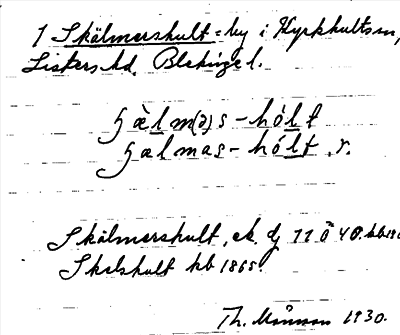 1 Skälmershult = by i Kyrkhults sn,
Listers hd. Blekinge l.
ʃæ̀lm(ə)s-hól t
ʃælmas-hólt .r.
Skälmershult, ek. dj 11 ö 40. kb 19
Skelshult kb 1865.
Th. Månsson 1930.